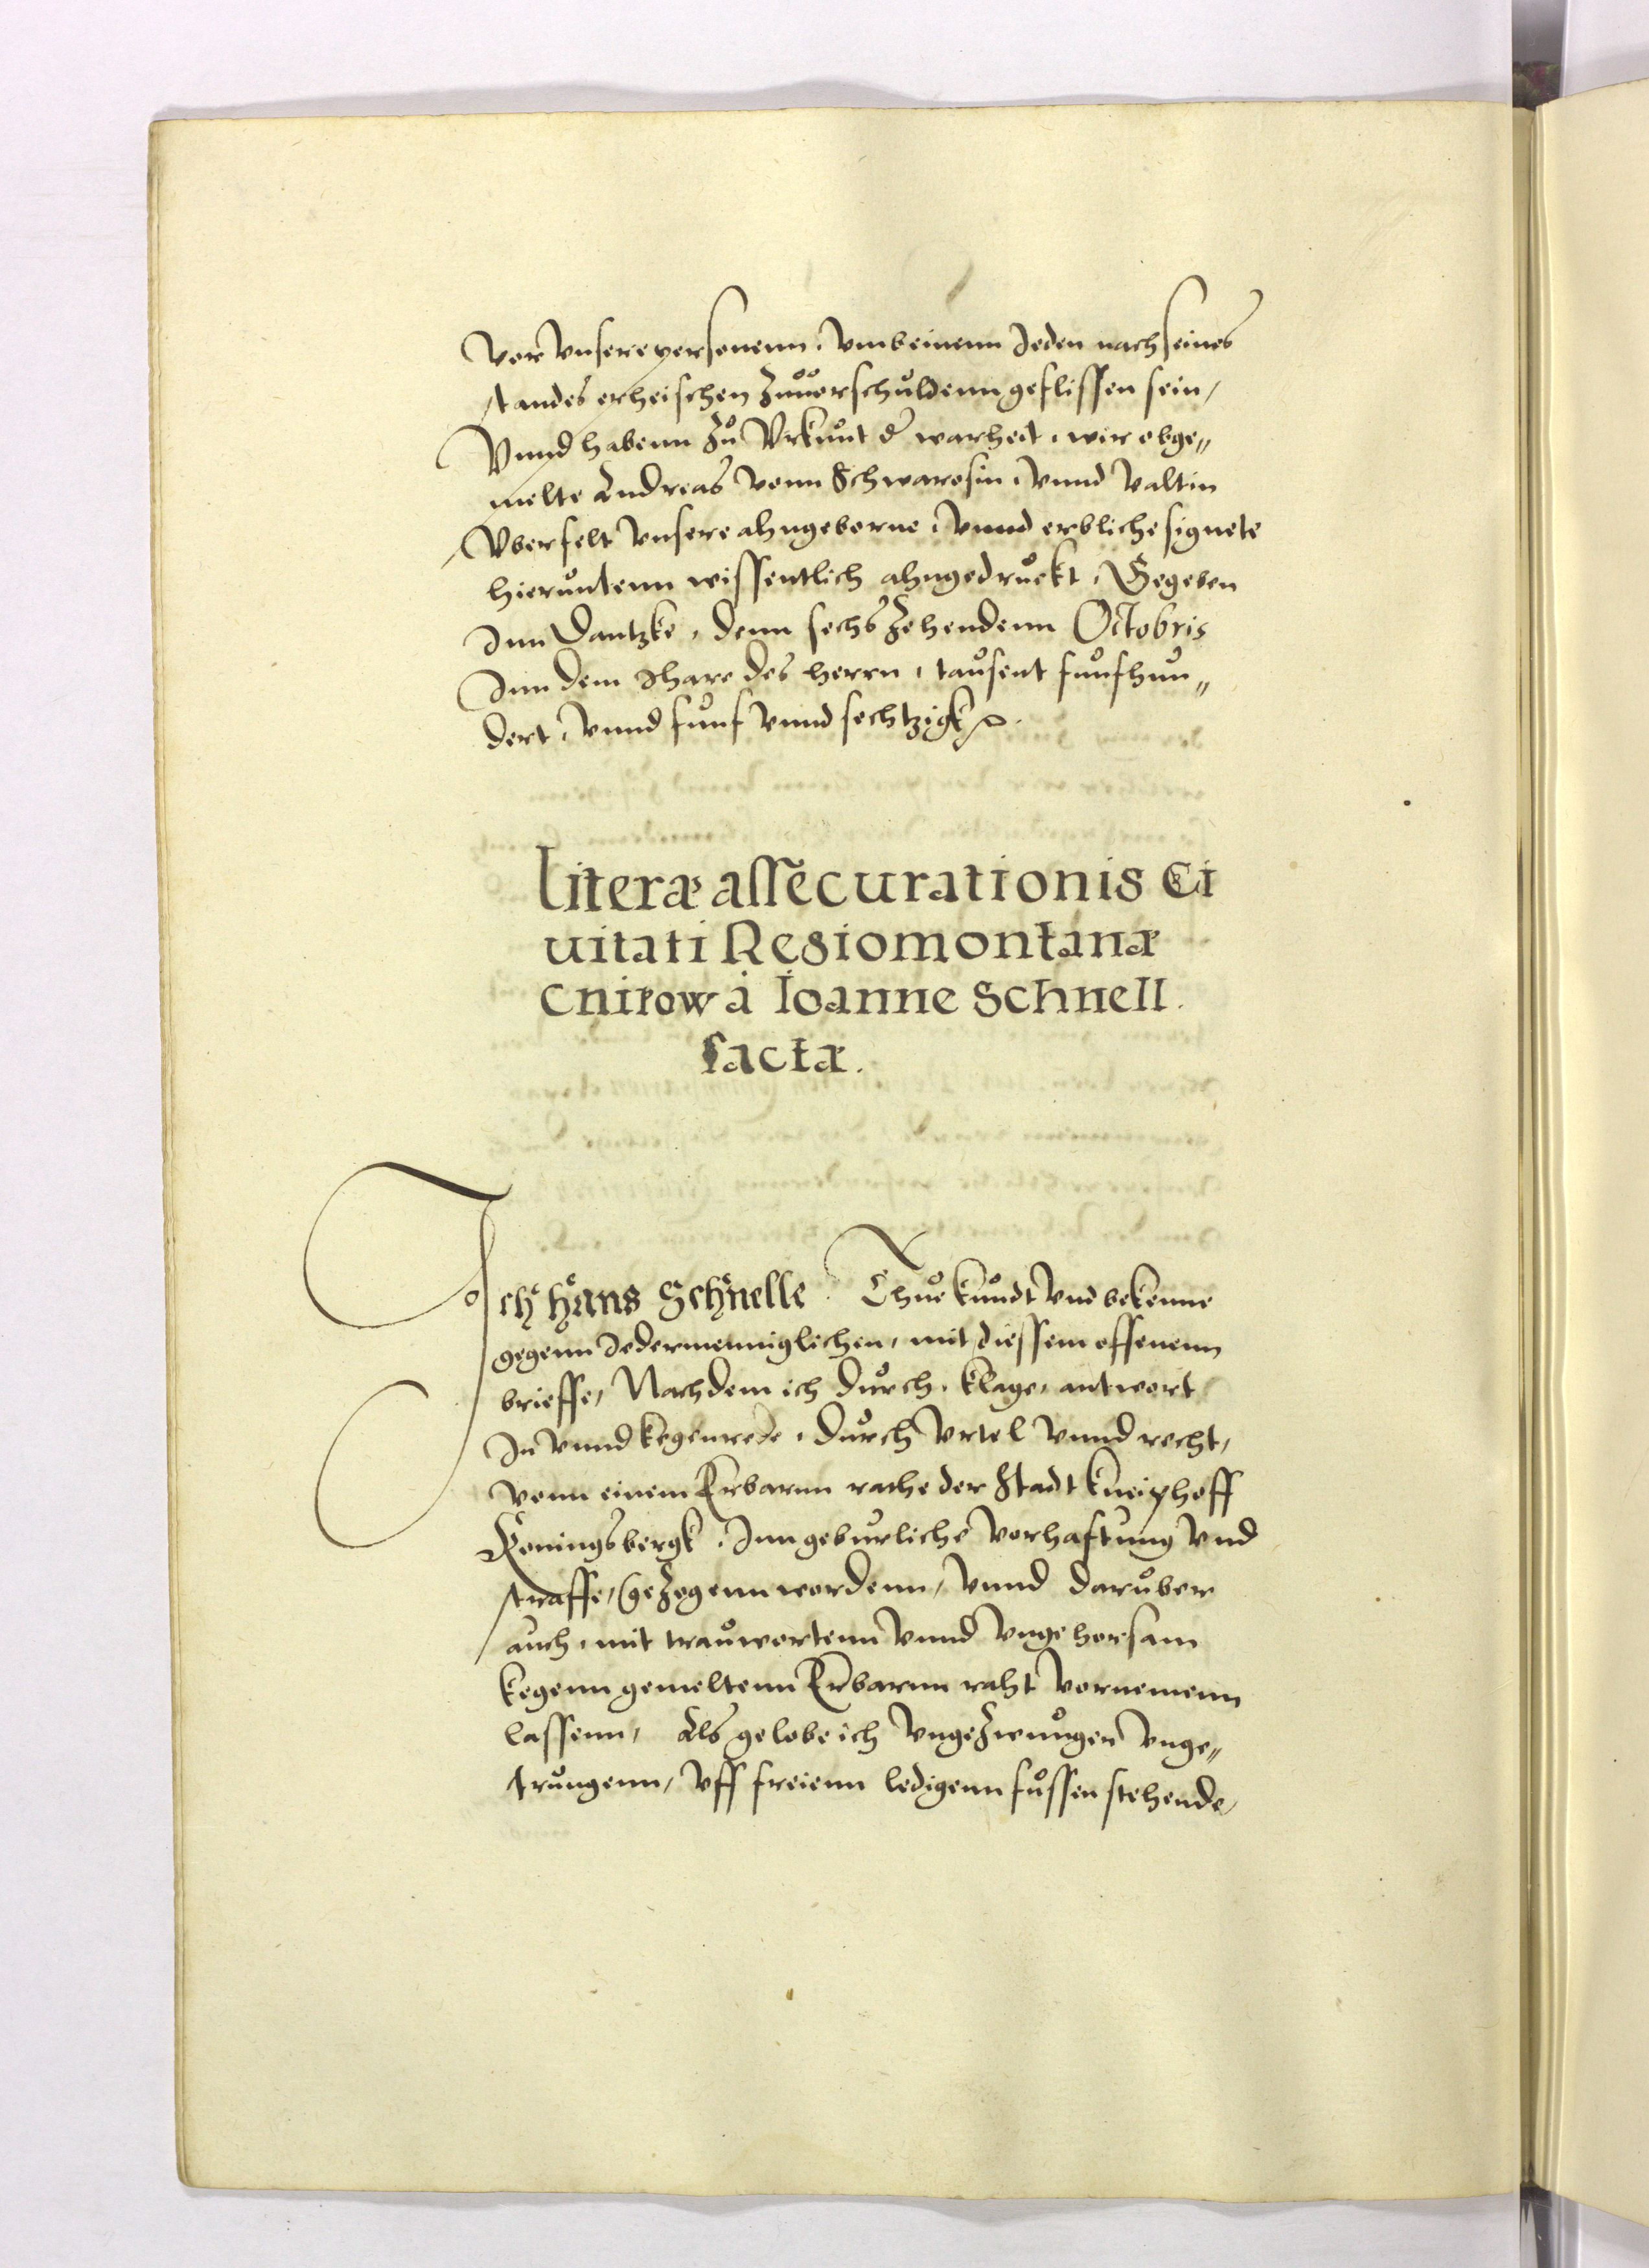 vor vnsere personenn, vmb einenn Jeden nach seines
standes erheischen zuuorschuldenn geflissen sein,
Vnnd habenn zu Vrkunt d warheit, wir obge„
melte Andreas vonn Schwarosin, vnnd Valtin
Vberfelt vnsere ahngeborne, vnnd erbliche signete
hieruntenn wissentlich ahngedruckt, Gegeben
Inn Dantzke, denn sechszehendenn Octobris
Inn dem Ihare des herrn, tausent funfhun„
dert, vnnd funf vnnd sechtzigk
Literæ assecurationis Ci
uitati Regiomontanæ
Cnipow à Ioanne Schnell.
factæ.
Ich hans Schnelle Thue kundt vnd bekenne
gegenn Jedermenniglichen, mit diessem offenenn
brieffe, Nachdem ich durch, klage, antwort
In vnnd kegenrede, durch vrtel vnnd recht,
vonn einem Erbarnn rathe der Stadt kneiphoff
Koningsbergk, Inn geburliche vorhaftung vnd
straffe, gezogenn wordenn, vnnd daruber
auch, mit trauwortenn vnnd vngehorsam
kegenn gemeltenn Erbarnn raht vornemenn
lassenn, Als gelobe ich vngezwungen vnge„
trungenn, vff freienn ledigenn fussen stehende,